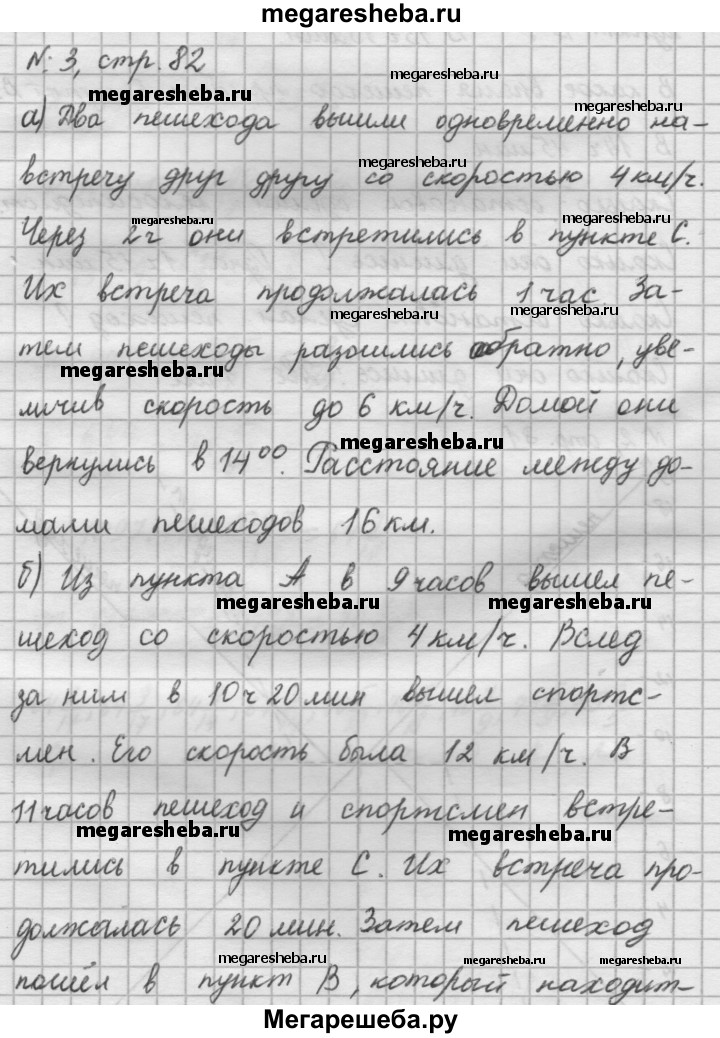 megaresheba.ru
№ 3, стр. 82
megaresheba.ru
megaresheba.ru
megaresheba.ru
а) Два пешехода вышли одновременно на-
megaresheba.ru
встречу друг другу со скоростью 4 км/ч.
megaresheba.ru
megaresheba.ru
Через 2ч они встретились в пункте С.
Их встреча продолжалась 1 час. За-
megaresheba.ru
тем пешеходы разошлись обратно, уве-
megaresheba.ru
megaresheba.ru
личив скорость до 6 км/ч. Домой они
megaresheba.ru
вернулись в 14⁰⁰. Расстояние между до-
мами пешеходов 16 км.
б) Из пункта А в 9 часов вышел пе-
megaresheba.ru
megaresheba.ru
шеход со скоростью 4 км/ч. Вслед
за ним в 10 ч 20 мин вышел спортс-
мен. Его скорость была 12 км/ч. В
11 часов пешеход и спортсмен встре-
megaresheba.ru
megaresheba.ru
тились в пункте С. Их встреча про-
должалась 20 мин. Затем пешеход
megaresheba.ru
megaresheba.ru
megaresheba.ru
пошёл в пункт В, который находит-
Мегарешеба.ру